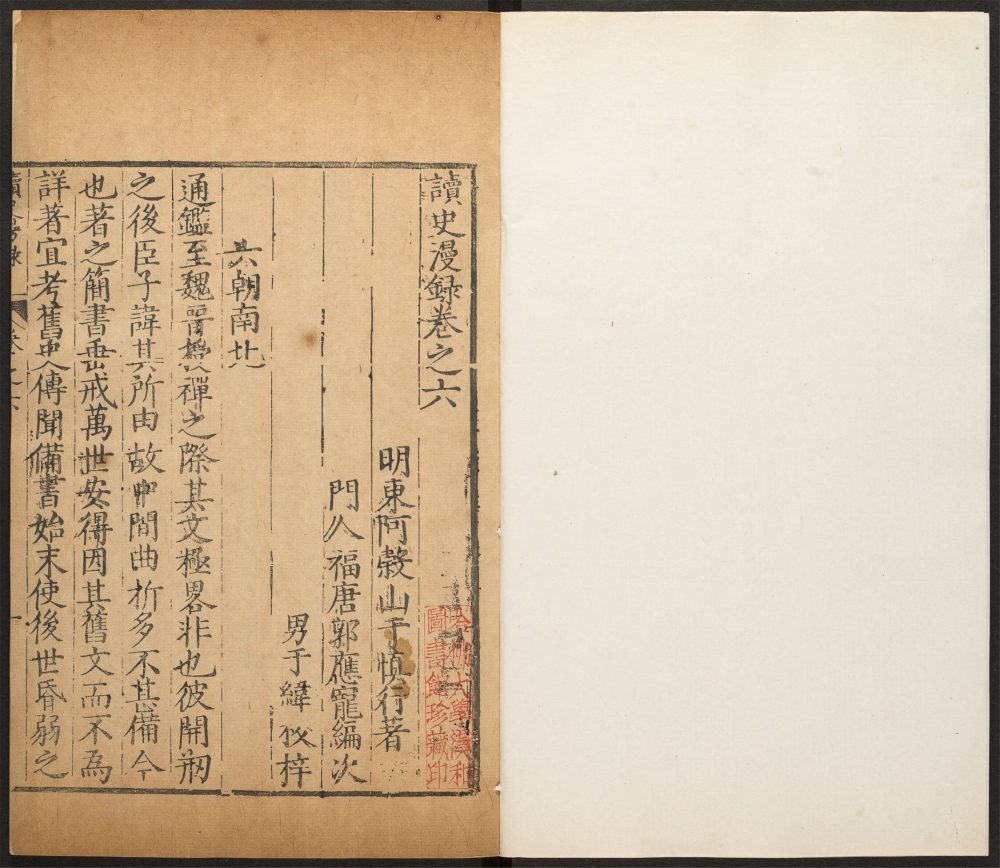 讀史漫録卷之六
明東阿榖山于慎行著
門人福唐郭應寵編次
男于緯校梓
六朝南北
通鑑至魏晉授禪之際其文極畧非也彼開剏
之後臣子諱其所由故中間曲折多不甚備今
也著之簡書垂戒萬世安得因其舊文而不為
詳著宜考舊史傳聞備書始末使後世昏弱之
哈佛大學漢和
圖書館珍藏印